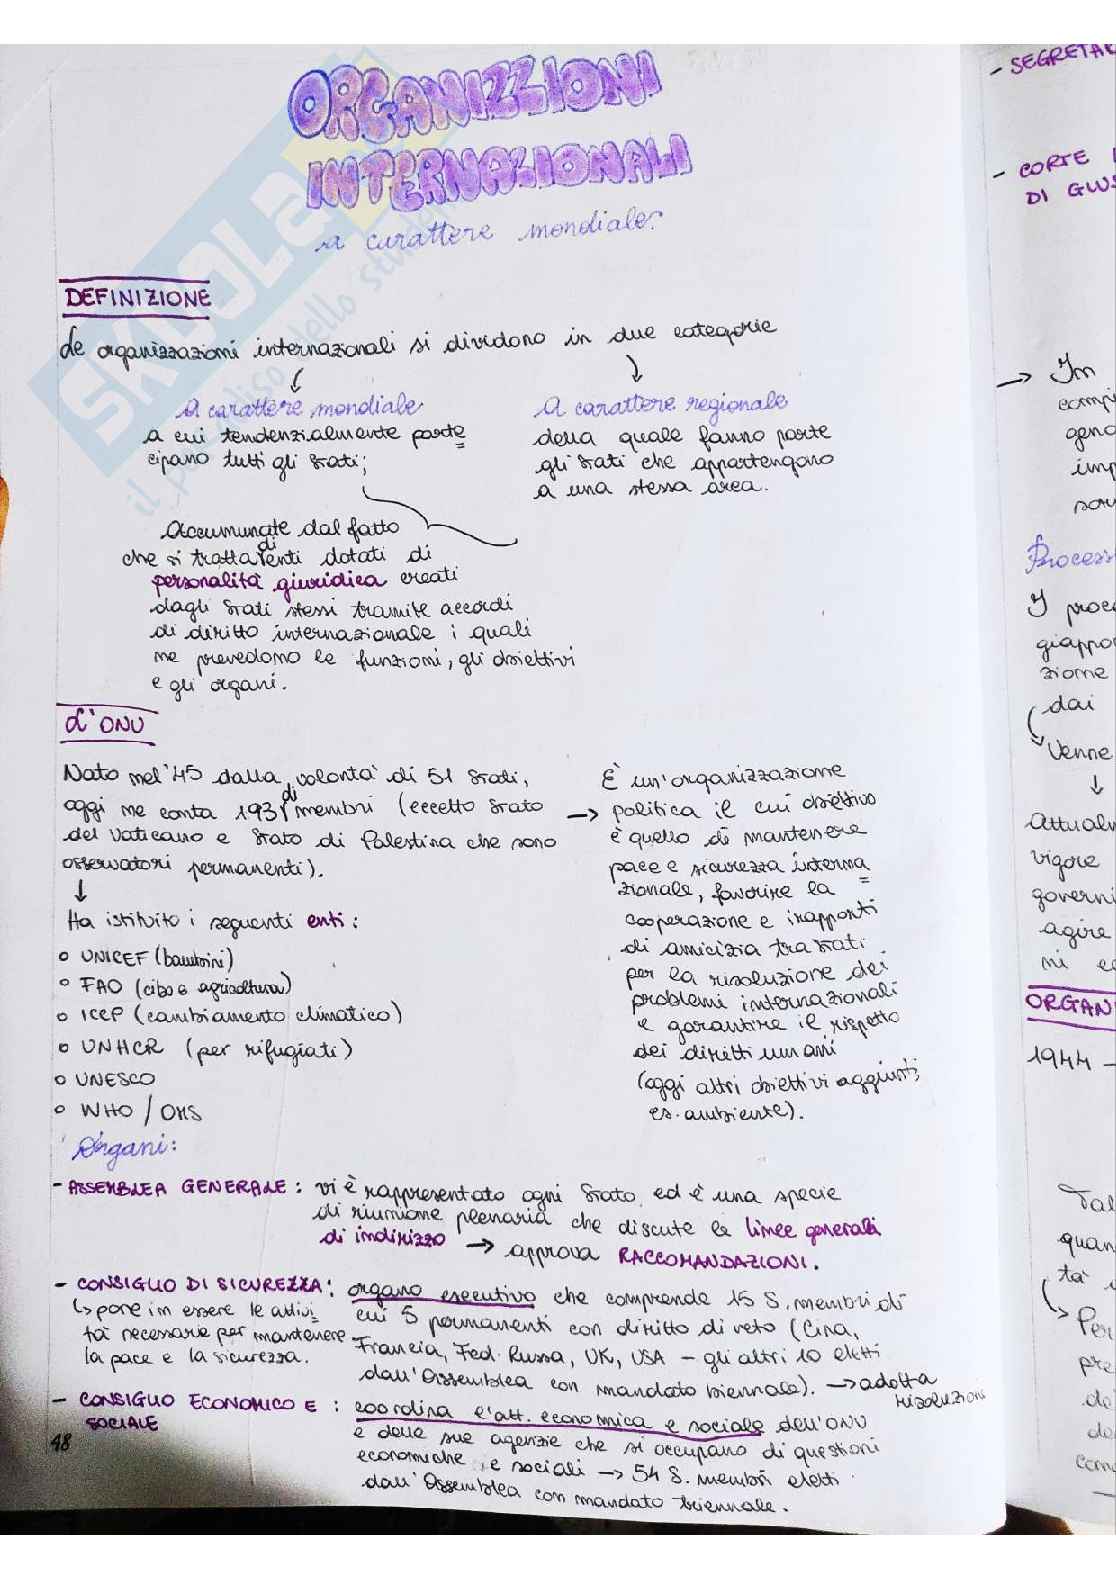 ORGANIZZIONI
INTERNAZIONALI
a carattere mondiale:
DEFINIZIONE
Le organizzazioni internazionali si dividono in due categorie
A carattere mondiale
a cui tendenzialmente parte
cipano tutti gli stati;
A carattere regionale
della quale fanno parte
gli stati che appartengono
a una stessa area.
Accumunate dal fatto
che si tratta di enti dotati di
personalità giuridica creati
dagli stati stessi tramite accordi
di diritto internazionale i quali
ne prevedono le funzioni, gli obiettivi
e gli organi.
L'ONU
Nato nel '45 dalla volontà di 51 stati,
oggi ne conta 193 di membri (eccetto stato
del Vaticano e stato di Palestina che sono
osservatori permanenti).
Ha istituito i seguenti enti:
° UNICEF (bambini)
° FAO (cibo e agricoltura)
° ICCP (cambiamento climatico)
° UNHCR (per rifugiati)
° UNESCO
° WHO / OMS
→ È un'organizzazione
politica il cui obiettivo
è quello di mantenere
pace e sicurezza interna
zionale, favorire la
cooperazione e i rapporti
di amicizia tra stati
per la risoluzione dei
problemi internazionali
e garantire il rispetto
dei diritti umani
(oggi altri obiettivi aggiunti,
es. ambiente).
Organi:
- ASSEMBLEA GENERALE: vi è rappresentato ogni stato, ed è una specie
di riunione plenaria che discute le linee generali
di indirizzo → approva RACCOMANDAZIONI.
- CONSIGLIO DI SICUREZZA: organo esecutivo che comprende 15 S. membri di
cui 5 permanenti con diritto di veto (Cina,
Francia, Fed. Russa, UK, USA - gli altri 10 eletti
dall'Assemblea con mandato biennale). → adotta
risoluzioni
↳ pone in essere le attivi
tà necessarie per mantenere
la pace e la sicurezza.
- CONSIGLIO ECONOMICO E SOCIALE: coordina l'att. economica e sociale dell'ONU
e delle sue agenzie che si occupano di questioni
economiche e sociali → 54 S. membri eletti
dall'Assemblea con mandato triennale.
48
- SEGRETAR
- CORTE
DI GIUS
→ In
compi
geno
imp
Process
I proce
giappo
zione
dai
Venne
Attualm
vigore
governi
agire
ORGAN
1944 -
Tal
quan
tà
Per
pre
de
com
SKUOLA
il paradiso dello studente